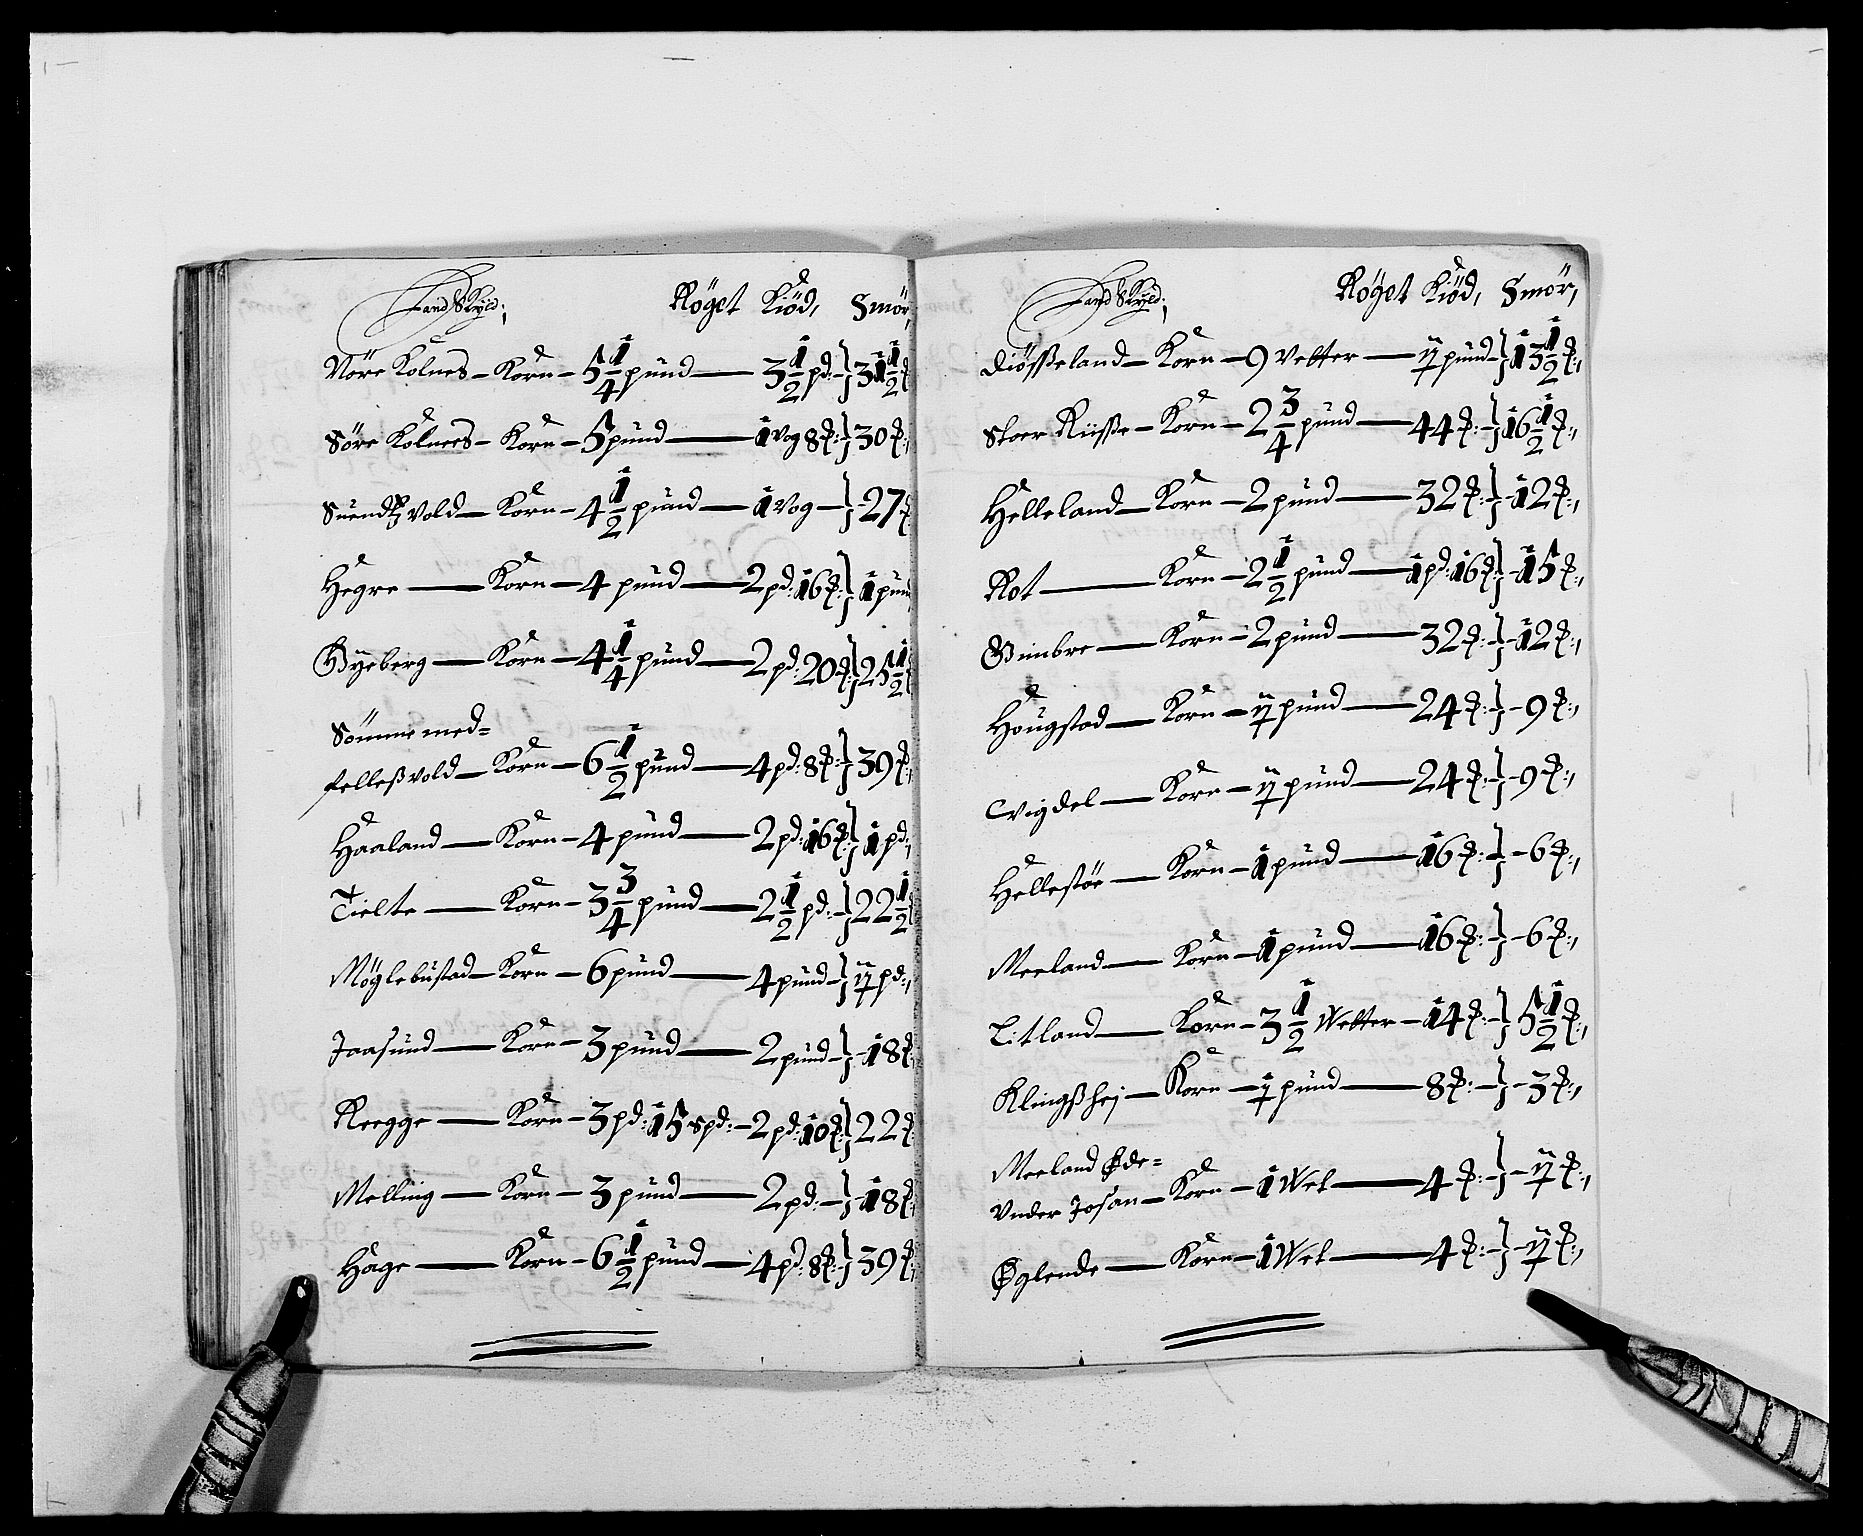 Land Skyld; Röget Kiöd, Smör,
Nöre Kolnes – Korn – 5 1/4 pund — 3 1/2 pd: – } 31 1/2 ℔
Söre Kolnees – Korn – 5 pund — 1 vog 8 ℔: } 30 ℔:,
Suendß vold – Korn – 4 1/2 pund — 1 vog – } 27 ℔
Hegre — Korn – 4 pund — 2 pd: 16 ℔: } 1 pund
Byeberg — Korn – 4 1/4 pund — 2 pd: 20 ℔: } 25 1/2
Sömme med=
felleßvold – Korn – 6 1/2 pund — 4 pd: 8 ℔: } 39 ℔:,
Haaland — Korn – 4 pund — 2 pd: 16 ℔: } 1 pd:,
Tielte — Korn – 3 3/4 pund — 2 1/2 pd: – } 22 1/2
Möglebustad – Korn – 6 pund — 4 pund – } ij pd:,
Jaasund — Korn – 3 pund — 2 pund – } 18 ℔:
Reegge — Korn – 3 pd: 15 spd: – 2 pd: 10 ℔ } 22 ℔:
Melling — Korn – 3 pund — 2 pd: – } 18 ℔:
Hage — Korn – 6 1/2 pund — 4 pd: 8 ℔: } 39 ℔:
Land Skyld; Röget Kiöd, Smör,
Diösseland – Korn – 9 Vetter — ij pund – } 13 1/2 ℔:,
Stoer Riisse – Korn – 2 3/4 pund — 44 ℔: – } 16 1/2 ℔:,
Helleland – Korn – 2 pund — 32 ℔: – } – 12 ℔:,
Rot — Korn – 2 1/2 pund — 1 pd: 16 ℔: } – 15 ℔:,
Gimbre — Korn – 2 pund — 32 ℔: – } – 12 ℔:,
Hougstad — Korn – ij pund — 24 ℔: – } – 9 ℔:,
Vigdel — Korn – ij pund — 24 ℔: – } – 9 ℔:,
Hellestöe — Korn – 1 pund — 16 ℔: – } – 6 ℔:,
Meeland — Korn – 1 pund — 16 ℔: – } – 6 ℔:,
Litland — Korn – 3 1/2 Wetter – 14 ℔: – } 5 1/2 ℔:,
Klingßhej – Korn – ½ pund — 8 ℔: – } – 3 ℔:,
Meeland Øde=
Under Josan – Korn – 1 Wet — 4 ℔: – } – ij ℔:,
Øglende — Korn – 1 Wet — 4 ℔: – } – ij ℔:,